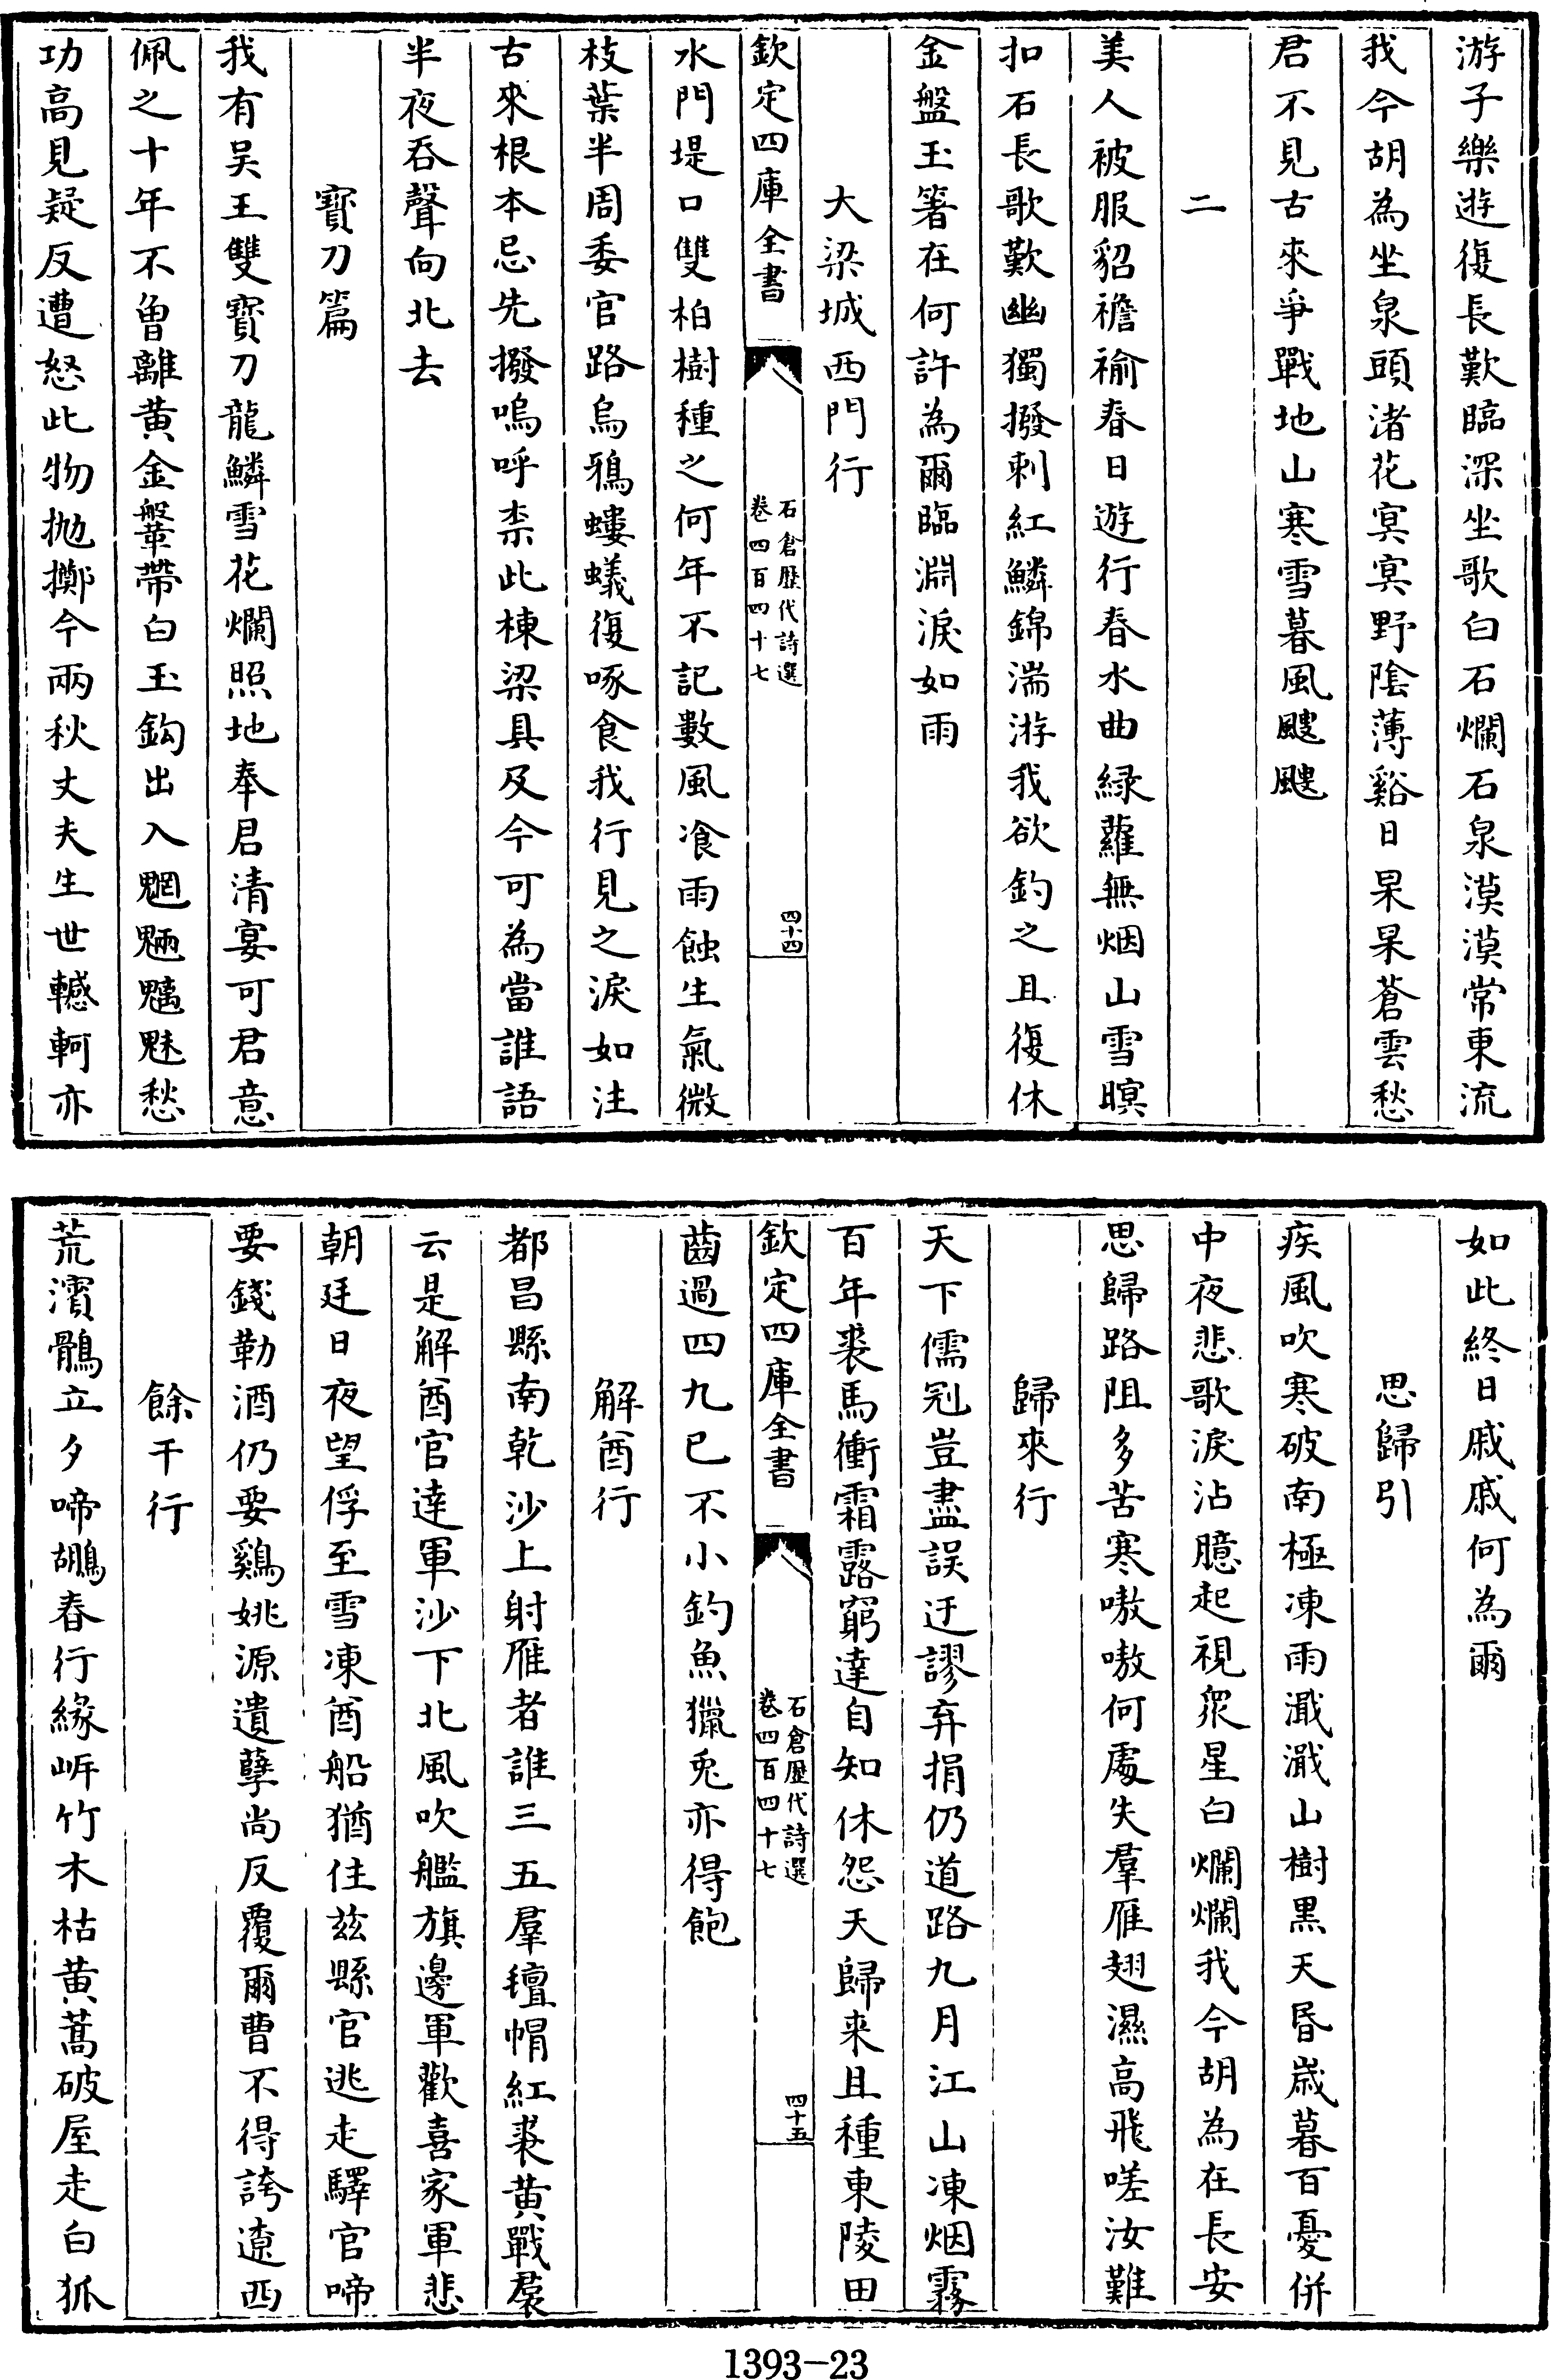 游子樂遊復長歎臨深坐歌白石爛石泉漠漠常東流
我今胡為坐泉頭渚花寞寞野陰薄谿日杲杲蒼雲愁
君不見古來爭戰地山寒雪暮風颼颼
二
美人被服貂襜褕春日遊行春水曲緑蘿無烟山雪暝
扣石長歌歎幽獨撥刺紅鱗錦湍游我欲釣之且復休
金盤玉箸在何許為爾臨淵淚如雨
大梁城西門行
欽定四庫全書
石倉歷代詩選
卷四百四十七
四十四
水門堤口雙柏樹種之何年不記數風飡雨蝕生氣微
枝葉半周委官路烏鴉螻蟻復啄食我行見之淚如注
古來根本忌先撥嗚呼柰此棟梁具及今可為當誰語
半夜吞聲向北去
寳刀篇
我有吴王雙寳刀龍鱗雪花爛照地奉君清宴可君意
佩之十年不曾離黄金鞶帶白玉鈎出入魍魎魑魅愁
功高見疑反遭怒此物抛擲今兩秋丈夫生世轗軻亦
如此終日戚戚何為爾
思歸引
疾風吹寒破南極凍雨濈濈山樹黒天昏嵗暮百憂併
中夜悲歌淚沾臆起視衆星白爛爛我今胡為在長安
思歸路阻多苦寒嗷嗷何處失羣雁翅濕高飛嗟汝難
歸來行
天下儒冠豈盡誤迂謬弃捐仍道路九月江山凍烟霧
百年裘馬衝霜露窮達自知休怨天歸来且種東陵田
欽定四庫全書
石倉歷代詩選
卷四百四十七
四十五
齒過四九已不小釣魚獵兎亦得飽
解酋行
都昌縣南乾沙上射雁者誰三五羣氊帽紅裘黄戰裠
云是解酋官逹軍沙下北風吹艦旗邊軍歡喜家軍悲
朝廷日夜望俘至雪凍酋船猶住兹縣官逃走驛官啼
要錢勒酒仍要鷄姚源遺孽尚反覆爾曹不得誇遼西
餘干行
荒濱鶻立夕啼鶘春行緣㟁竹木枯黄蒿破屋走白狐
1393-23